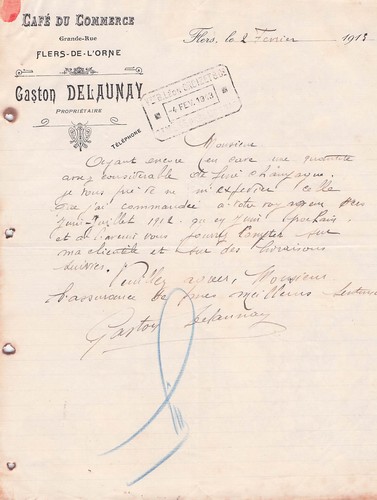 CAFÉ DU COMMERCE
Grande-Rue
FLERS-DE-L'ORNE
Gaston DELAUNAY
PROPRIÉTAIRE
TÉLÉPHONE
Flers, le 2 Fevrier 1913
4 FEV. 1913
Monsieur
Ayant encore en cave une quantité
assez considérable de
je vous prie de ne m'expédier celle
que j'ai commandée à votre voyageur
Juin Juillet 1912 qu'en Juin prochain
et à l'avenir vous pouvez compter sur
ma clientèle et sur des livraisons
suivies. Veuillez agréer, Monsieur
l'assurance de mes meilleurs
Gaston Delaunay